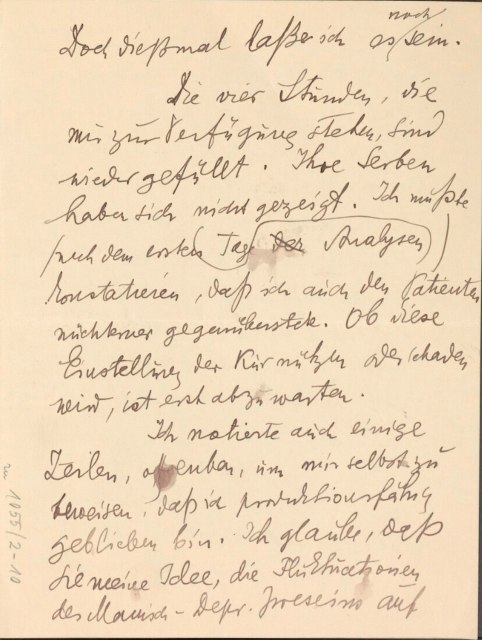 Doch dießmal laße ich es noch sein.
Die vier Stunden, die
mir zur Verfügung stehen, sind
wieder gefüllt. Ihre Serben
haben sich nicht gezeigt. Ich mußte
nach dem ersten Tag der Analysen
konstatieren, daß ich auch den Patienten
nüchterner gegenüberstehe. Ob diese
Einstellung der Kur nützen oder schaden
wird, ist erst abzuwarten.
Ich notierte auch einige
Zeilen, offenbar, um mir selbst zu
beweisen, daß ich produktionsfähig
geblieben bin. Ich glaube, daß
Sie meine Idee, die Fluktuationen
des Manisch-Depr. Irreseins auf
zu 1055/2-10